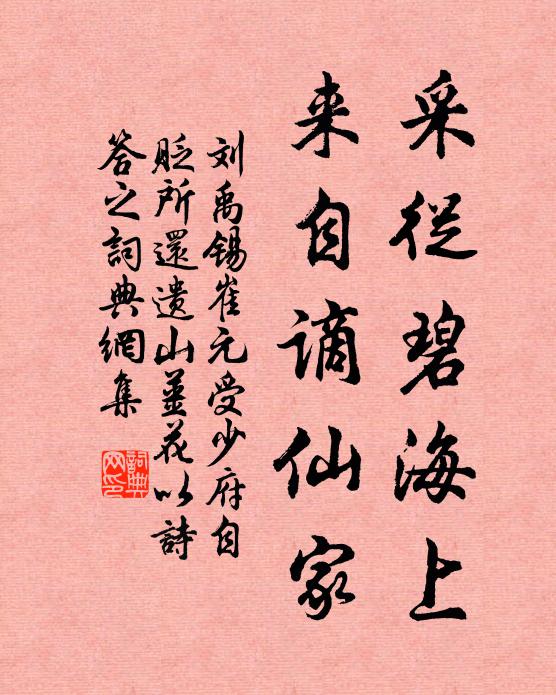 采從碧海上
来自谪仙家
刘禹锡崔元受少府自
贬所還遗山薑花以詩
答之詞典網集
詞典
网印